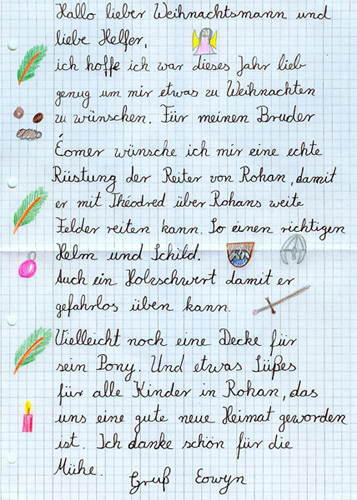 Hallo lieber Weihnachtsmann und
liebe Helfer,
ich hoffe ich war dieses Jahr lieb
genug um mir etwas zu Weihnachten
zu wünschen. Für meinen Bruder
Éomer wünsche ich mir eine echte
Rüstung der Reiter von Rohan, damit
er mit Théodred über Rohans weite
Felder reiten kann. So einen richtigen
Helm und Schild.
Auch ein Holzschwert damit er
gefahrlos üben kann.
Vielleicht noch eine Decke für
sein Pony. Und etwas Süßes
für alle Kinder in Rohan, das
uns eine gute neue Heimat geworden
ist. Ich danke schön für die
Mühe.
Gruß Eowyn